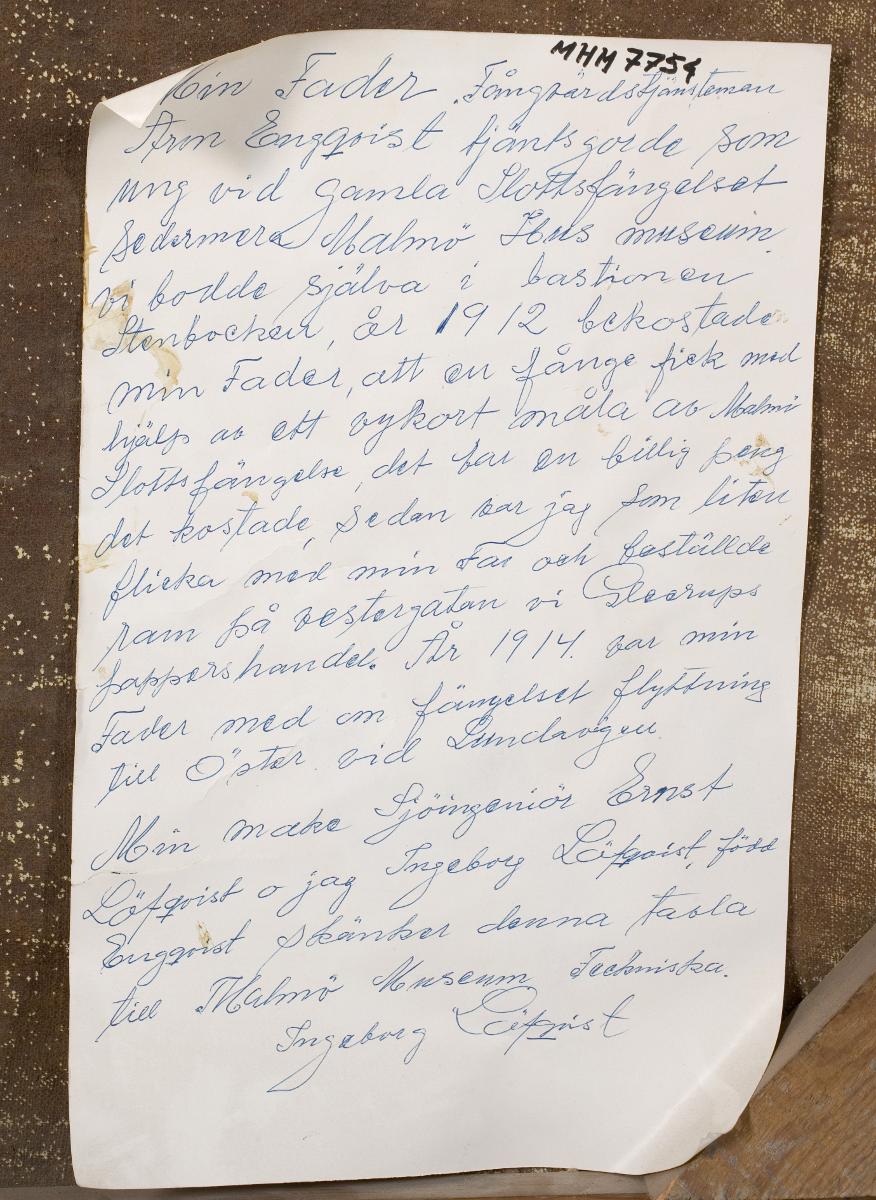 MHM 7754
Min Fader Fångvårdstjänsteman
Aron Engqvist tjäntsgorde som
ung vid gamla Slottsfängelset
sedermera Malmö Hus museum
vi bodde själva i bastionen
Stenbocken, år 1912 bekostade
min Fader, att en fånge fick med
hjälp av ett vykort måla av Malmö
Slottsfängelse, det var en billig peng
det kostade, sedan var jag som liten
flicka med min Far och beställde
ram på vestergatan vi Gleerups
pappershandel. År 1914. var min
Fader med om fängelset flyttning
till Öster vid Lundavägen
Min make Sjöingeniör Ernst
Löfqvist o jag Ingeborg Löfqvist, född
Engqvist skänker denna tavla
till Malmö Museum Teckniska.
Ingeborg Löfqvist